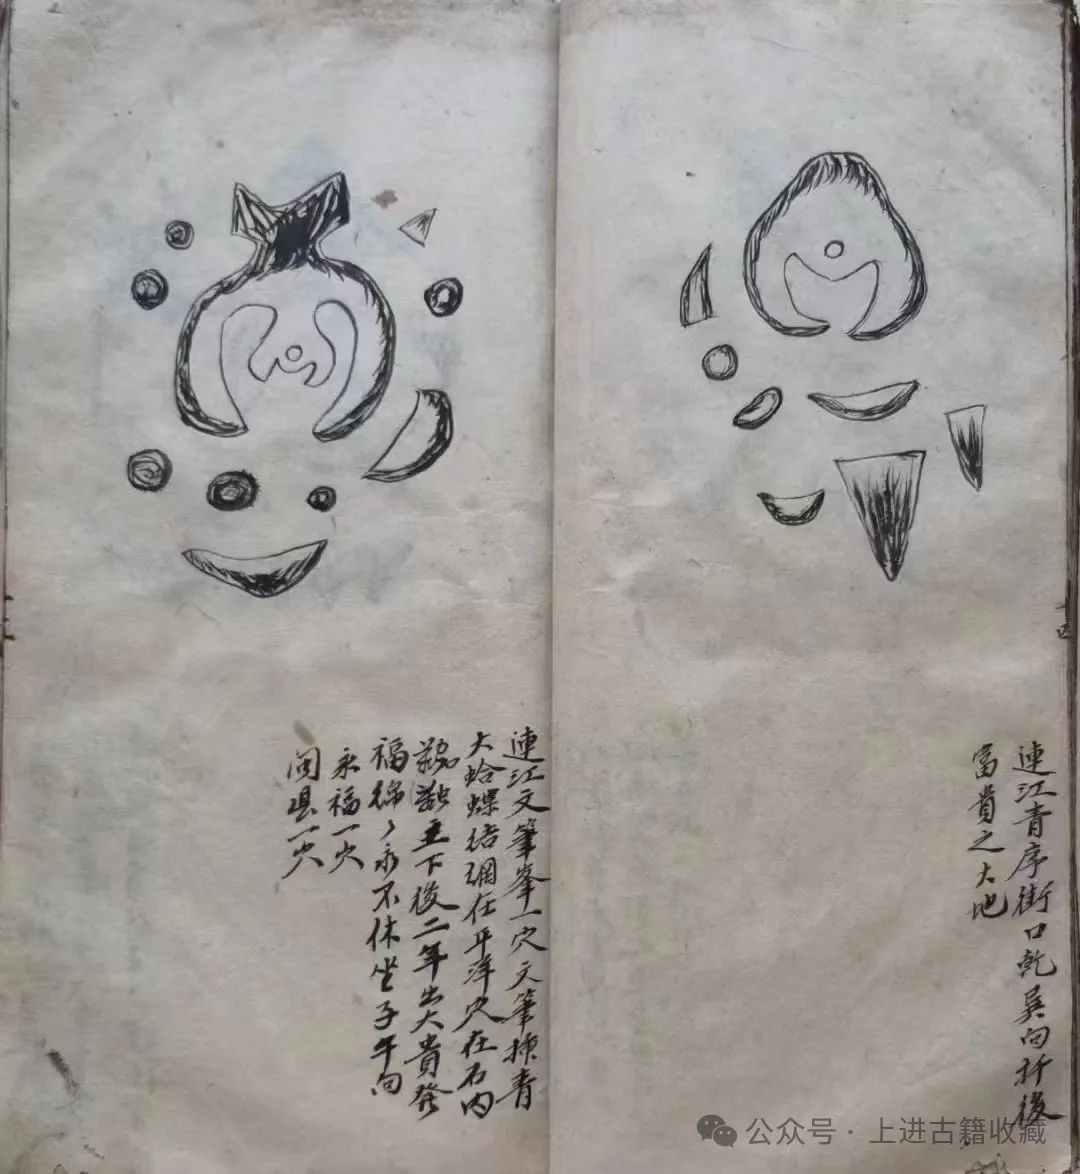 連江青序街口乾巽向扦後
富貴之大地
連江文筆峯一穴文筆揷青
大蛤蝶结網在平洋穴在石内
主下後二年出大貴發
福綿々永不休坐子午向
永福一穴
闽县一穴
公众号·上进古籍收藏